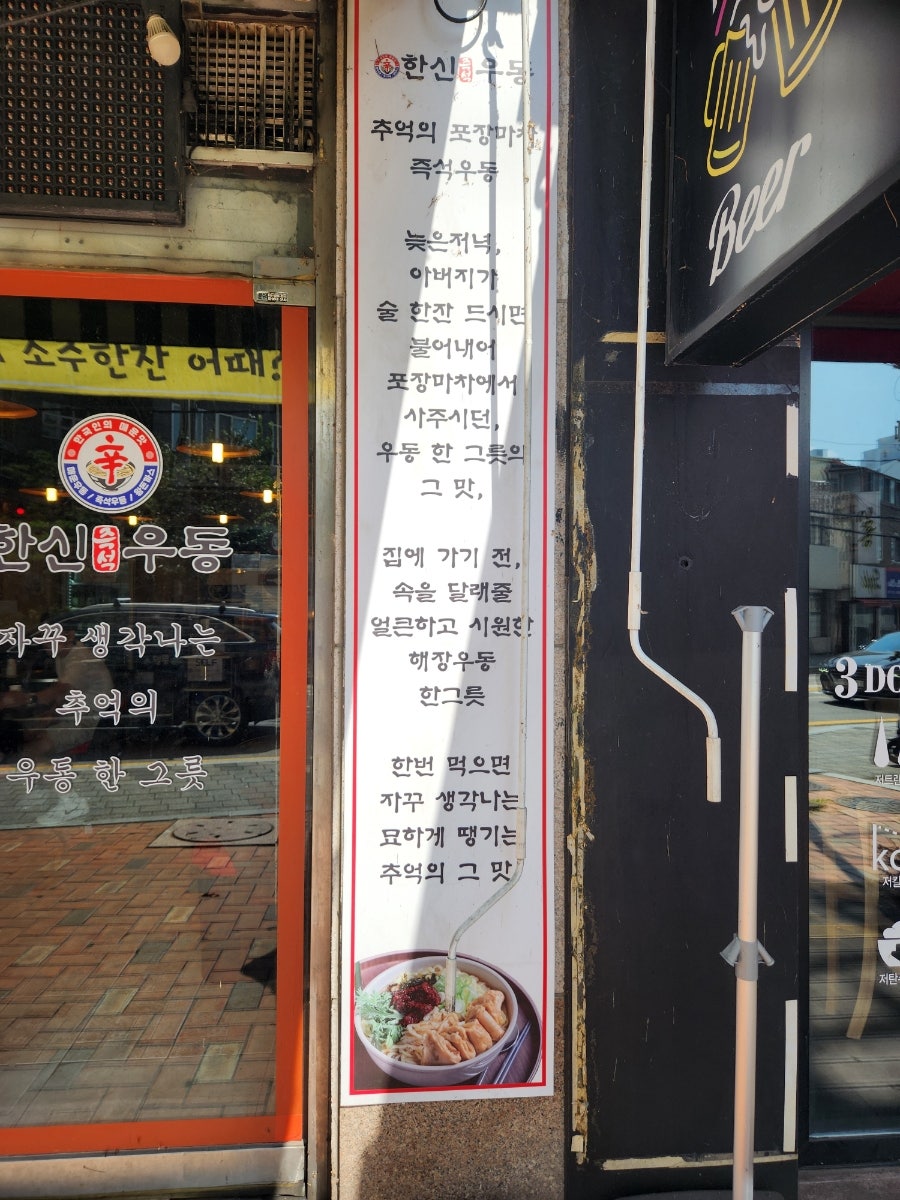 한신즉석우동
추억의 포장마차
즉석우동
늦은저녁,
아버지가
술 한잔 드시면
불어내어
포장마차에서
사주시던,
우동 한 그릇의
그 맛,
집에 가기 전,
속을 달래줄
얼큰하고 시원한
해장우동
한그릇
한번 먹으면
자꾸 생각나는
묘하게 땡기는
추억의 그 맛
소주한잔 어때?
한국인의 매운맛
辛
매운우동 / 즉석우동 / 왕돈까스
한신즉석우동
자꾸 생각나는
추억의
우동 한 그릇
SELF
Beer
3